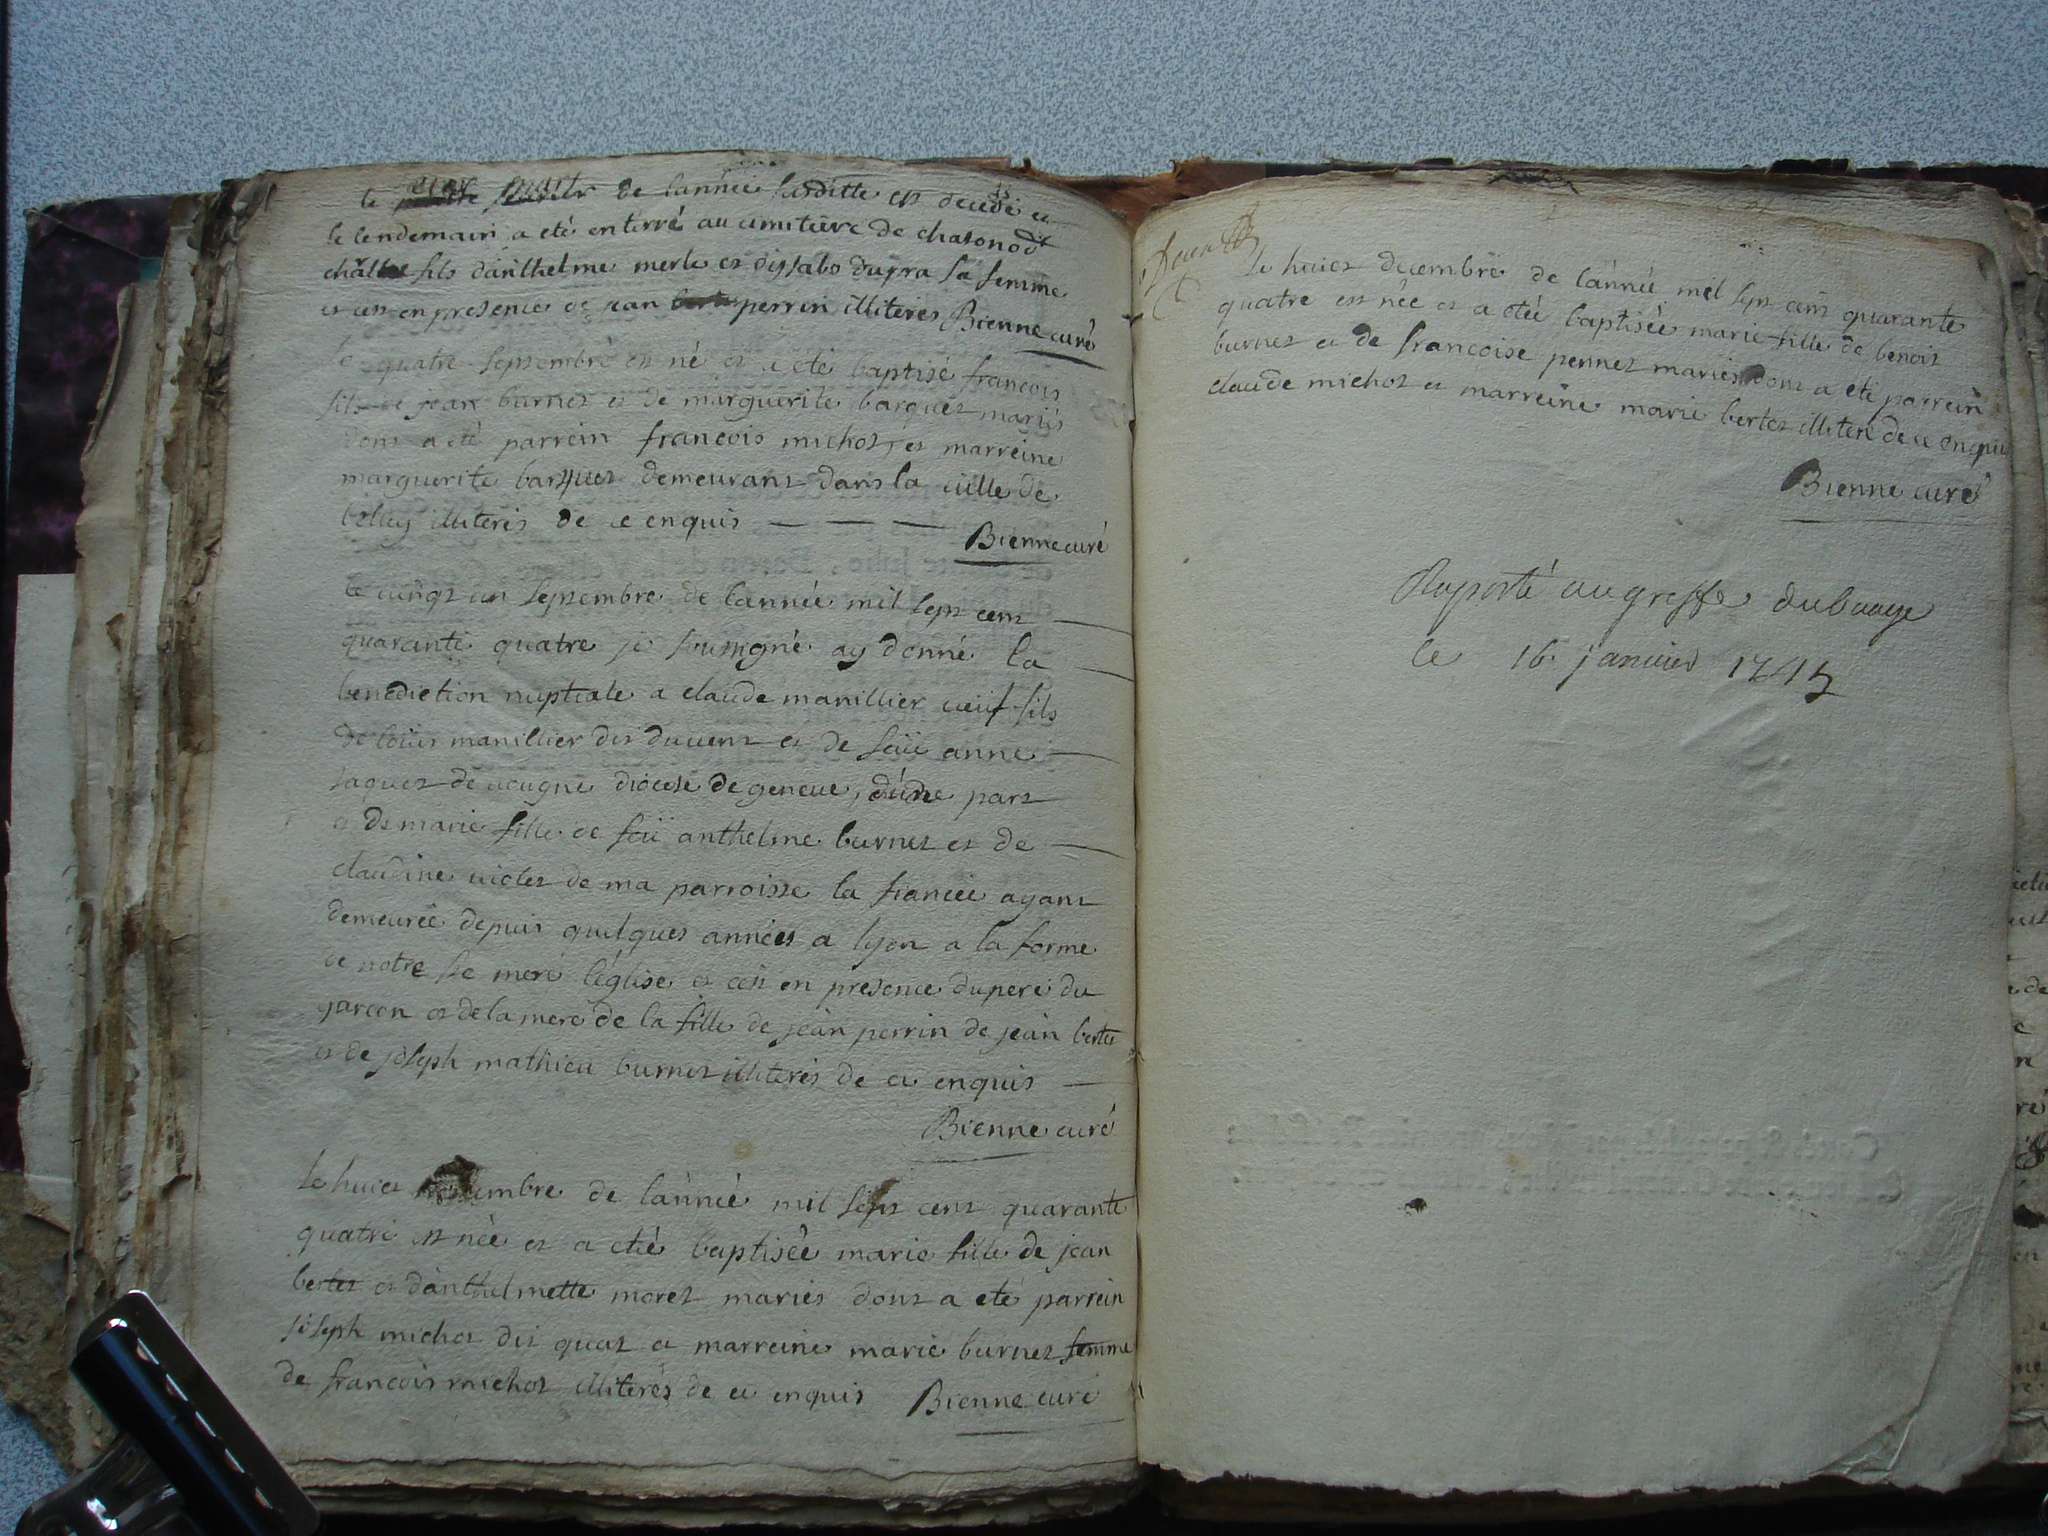 le de lannée susditte est decedé et
le lendemain a eté enterré au cimitiere de chasonod
fils danthelme merle et dyssabo dupra sa femme
et cest en presence de jean perrin illiteres Bienne curé
le quatre septembre est né et a eté baptisé francois
fils de jean burnet et de marguerite barquet mariés
dont a eté parrein francois michot, et marreine
marguerite barquet demeurant dans la ville de
belley illiterés de ce enquis
Bienne curé
le vingt un septembre de lannée mil sept cent
quarante quatre je sousigné ay donné la
benediction nuptiale a claude manillier veuf fils
de loüis manillier dit duvent et de feüe anne
jaquet de diocese de geneve, d'une part
et de marie fille de feü anthelme burnet et de
claudine violet de ma parroisse la fiancée ayant
demeurée depuis quelques années a lyon a la forme
de notre ste mere l'église et cest en presence du pere du
garcon et de la mere de la fille de jean perrin de jean bertet
et de joseph mathieu burnet illiterés de ce enquis
Bienne curé
le huict de lannée mil sept cent quarante
quatre est née et a eté baptisée marie fille de jean
bertet et danthelmette moret mariés dont a eté parrein
joseph michot dit quat et marreine marie burnet femme
de francois michot illiterés de ce enquis Bienne curé
le huict decembre de lannée mil sept cent quarante
quatre est née et a etée baptisée marie fille de benoit
burnet et de francoise pennet mariés dont a eté parrein
claude michot et marreine marie bertet illiteré de ce enquis
Bienne curé
Raporté au greffe
le 16 janvier 1745